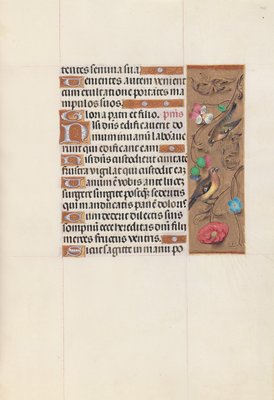 tentes semina sua
Venientes autem venient
cum exultatione portātes ma
nipulos suos.
Gloria patri et filio. p̄mis
Nisi dn̄s edificaverit do
mum in vanū labora ve
runt qui edificant eam
Nisi dn̄s custodierit civitatē
frustra vigilat qui custodit eā
Vanum ē vobis ante lucē
surgere surgite postq̄ sederitis
qui manducatis panē doloris
Cum dederit dilectis suis
somnū ecce hereditas dn̄i filij
merces fructus ventris.
Sicut sagitte in manu po